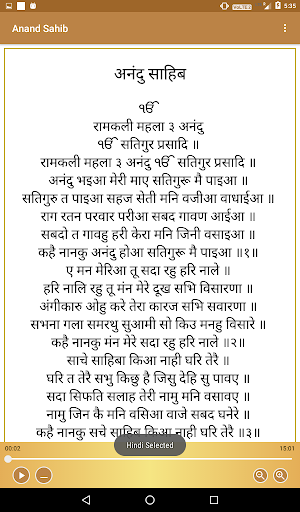 5:35
Anand Sahib
अनंदु साहिब
ੴ
रामकली महला ३ अनंदु
ੴ सतिगुर प्रसादि ॥
रामकली महला ३ अनंदु ੴ सतिगुर प्रसादि ॥
अनंदु भइआ मेरी माए सतिगुरू मै पाइआ ॥
सतिगुरु त पाइआ सहज सेती मनि वजीआ वाधाईआ ॥
राग रतन परवार परीआ सबद गावण आईआ ॥
सबदो त गावहु हरी केरा मनि जिनी वसाइआ ॥
कहै नानकु अनंदु होआ सतिगुरू मै पाइआ ॥१॥
ए मन मेरिआ तू सदा रहु हरि नाले ॥
हरि नालि रहु तू मंन मेरे दूख सभि विसारणा ॥
अंगीकारु ओहु करे तेरा कारज सभि सवारणा ॥
सभना गला समरथु सुआमी सो किउ मनहु विसारे ॥
कहै नानकु मंन मेरे सदा रहु हरि नाले ॥२॥
साचे साहिबा किआ नाही घरि तेरै ॥
घरि त तेरै सभु किछु है जिसु देहि सु पावए ॥
सदा सिफति सलाह तेरी नामु मनि वसावए ॥
नामु जिन कै मनि वसिआ वाजे सबद घनेरे ॥
कहै नानकु सचे साहिब किआ नाही घरि तेरै ॥३॥
Hindi Selected
00:02
15:01